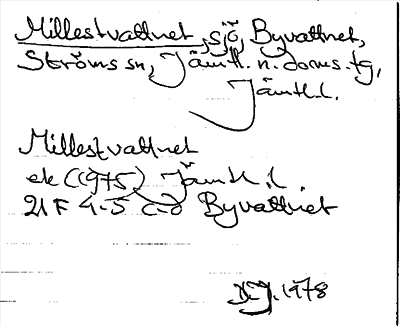 Millestvattnet, sjö, Byvattnet,
Ströms sn, Jämtl. n. doms. tg,
Jämtl.l.
Millestvattnet
ek (1975) Jämtl.l.
21 F 4-5 c-d Byvattnet
1978